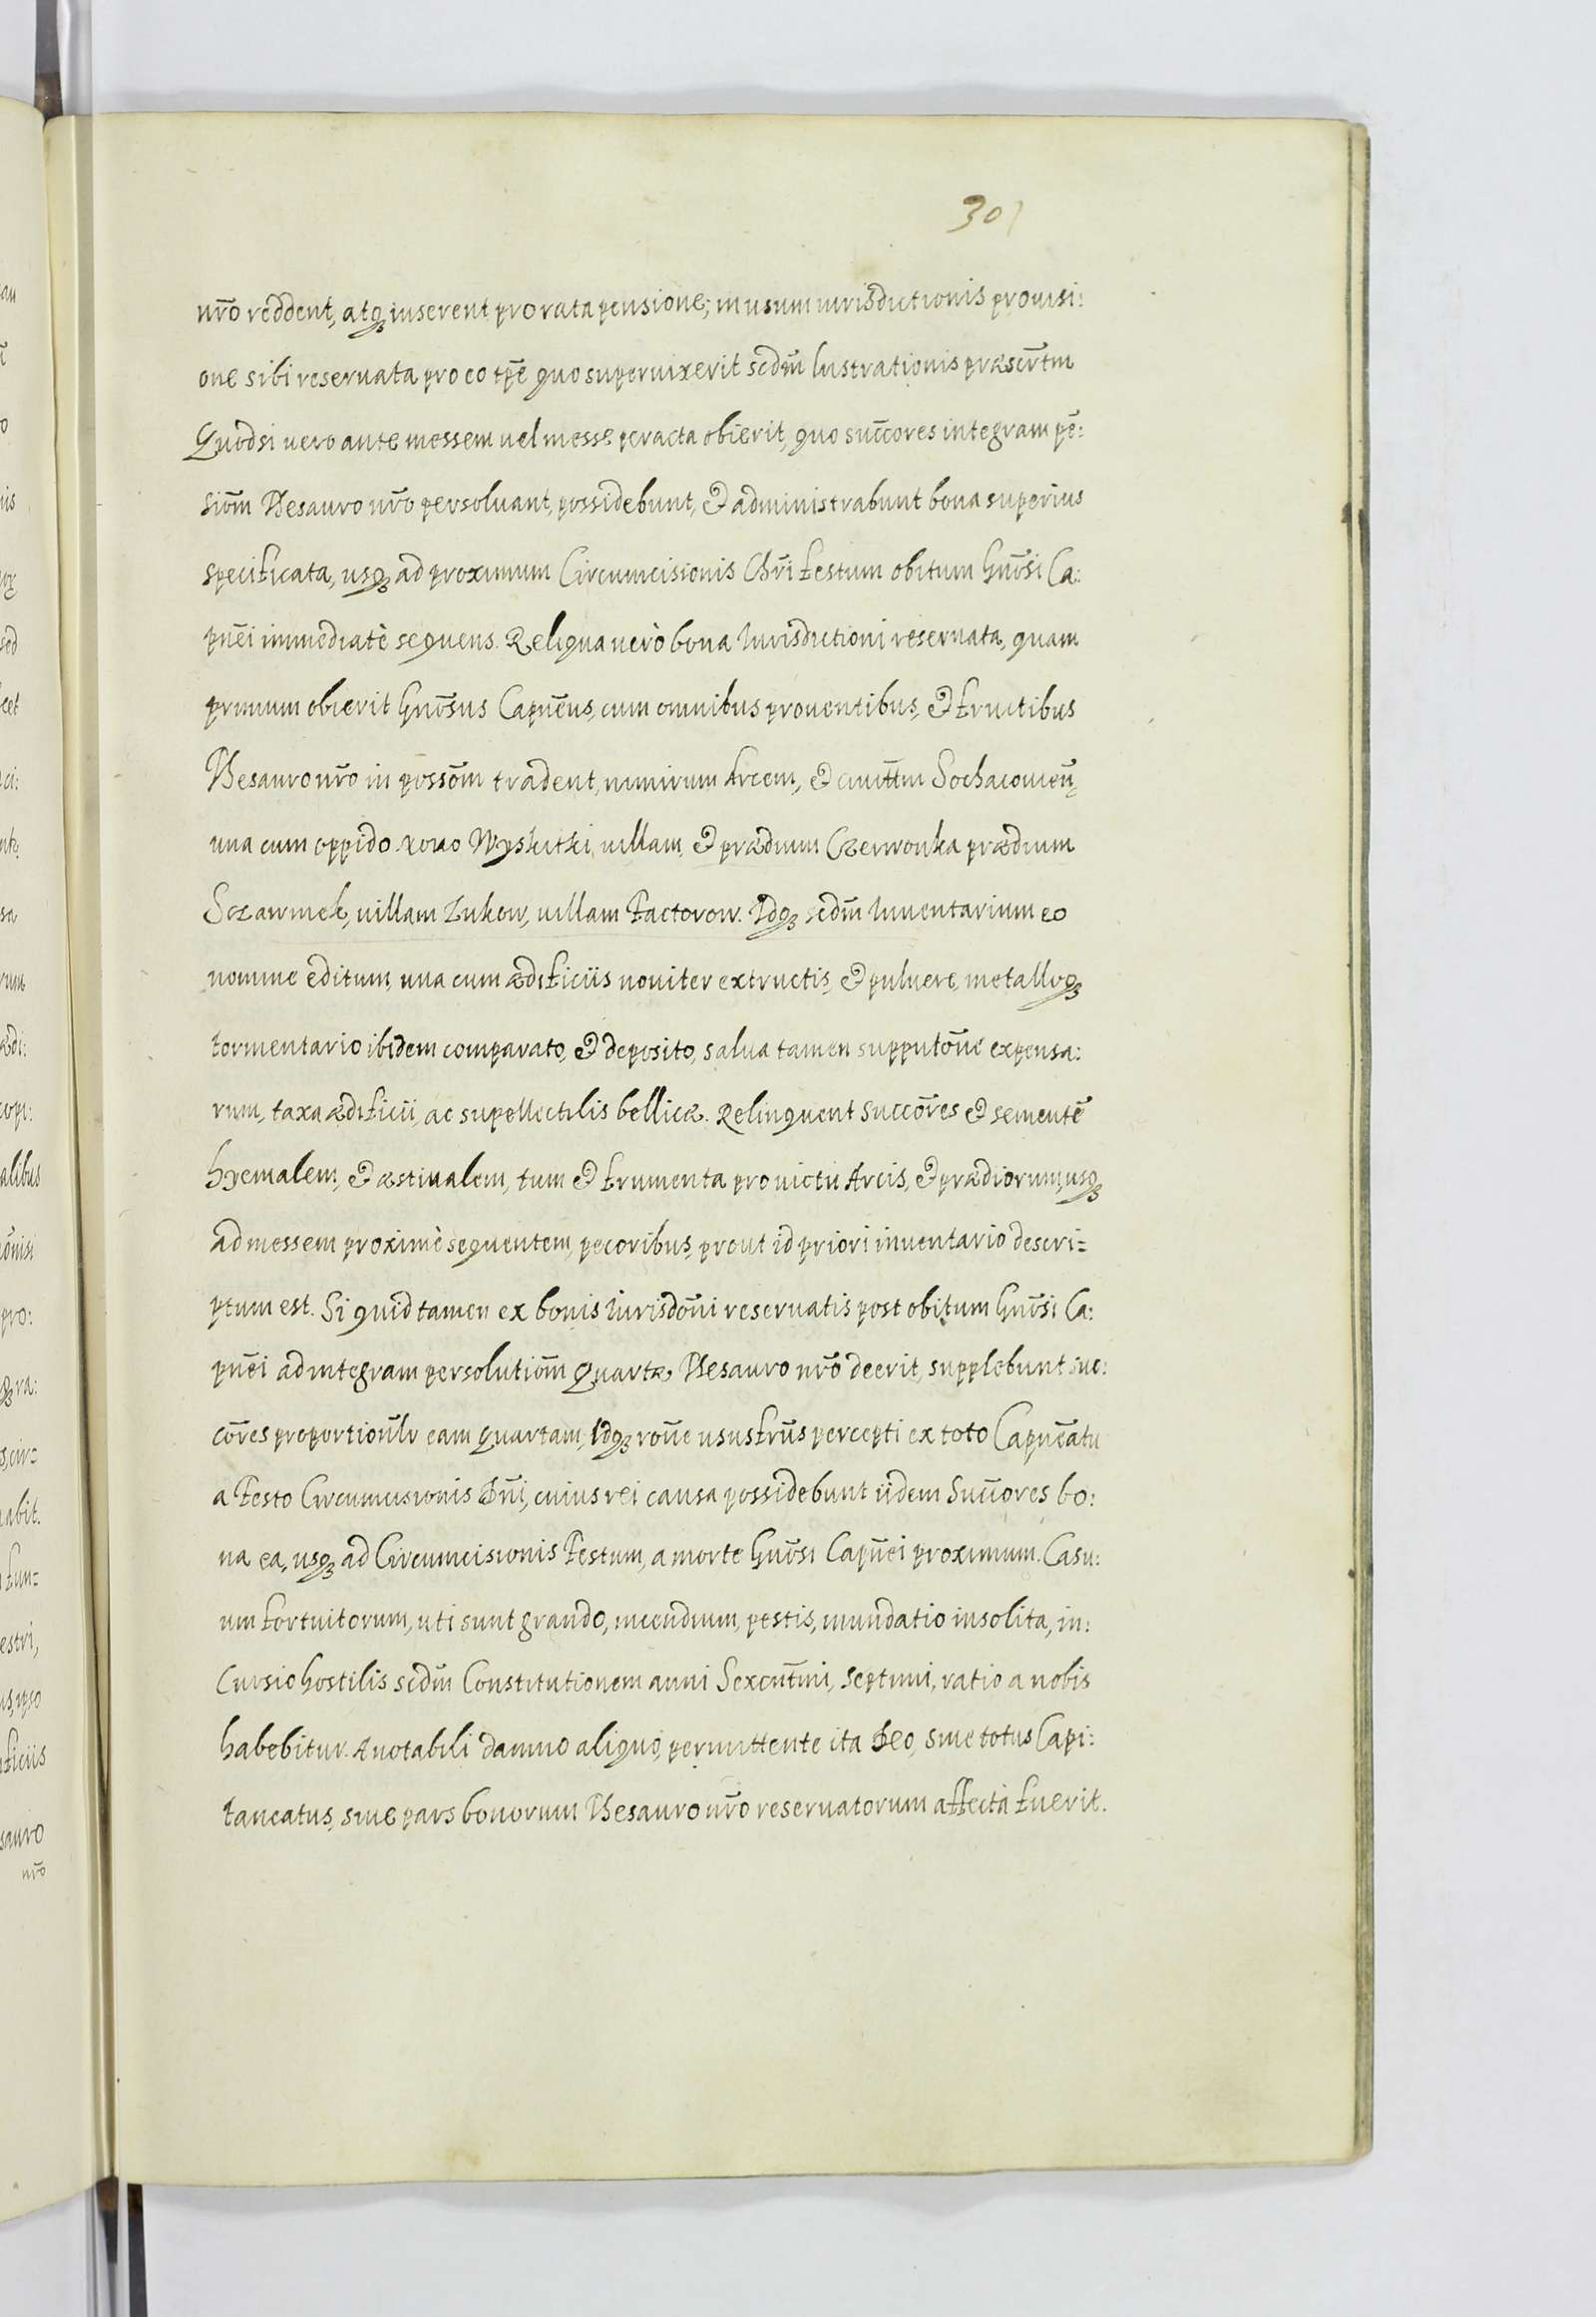 301
nr̃o reddent, atq₃ inserent pro rata pensione; in usum iurisdictionis prouisi:
one sibi reseruata pro eo tp̃e quo superuixerit scdm̃ lustrationis præser̃tm
Quodsi uero ante messem uel messe peracta obierit, quo succ̃ores integram pẽ:
siom̃ Thesauro nr̃o persoluant, possidebunt, & administrabunt bona superius
specificata, usq₃ ad proximum Circumcisionis Chr̃i festum obitum Gnr̃si Ca:
pnẽi immediatè sequens. Reliqua uerò bona Iurisdictioni reseruata, quam
primum obierit Gnõsus Capnẽus, cum omnibus prouentibus, & fructibus
Thesauro nr̃o in possõm tradent, nimirum Arcem, & ciuitt̃m Sochacouieñ,
una cum oppido nouo Wyskitki, uillam, & prædium Czerwonka prædium
Sczawinek, uillam Zukow, uillam Factorow. Idq₃ scdm̃ Inuentarium eo
nomine editum, una cum ædificiis nouiter extructis, & puluere, metalloq₃
tormentario ibidem comparato, & deposito, salua tamen supputõne expensa:
rum, taxa ædificii, ac supellectilis bellicæ. Relinquent succõres & sementẽ
hyemalem, & æstiualem, tum & frumenta pro uictu Arcis, & prædiorum, usq₃
ad messem proximè sequentem, pecoribus, prout id priori inuentario descri=
ptum est. Si quid tamen ex bonis Iurisdõni reseruatis post obitum Gnõsi Ca:
pnẽi ad integram persolutiom̃ Quartæ Thesauro nr̃o deerit, supplebunt suc:
cõres proportioñlr eam quartam, Idq₃ roñe ususfrũs percepti ex toto Capnẽatu
a Festo Circumcisionis Dñi, cuius rei causa possidebunt iidem Succ̃ores bo:
na ea, usq₃ ad Circumcisionis Festum, a morte Gnõsi Capnẽi proximum. Casu:
um fortuitorum, uti sunt grando, incendium, pestis, inundatio insolita, in:
cursio hostilis scdm̃ Constitutionem anni Sexcñtmi, septimi, ratio a nobis
habebitur. A notabili damno aliquo, permittente ita Deo, siue totus Capi:
taneatus, siue pars bonorum Thesauro nr̃o reseruatorum affecta fuerit.